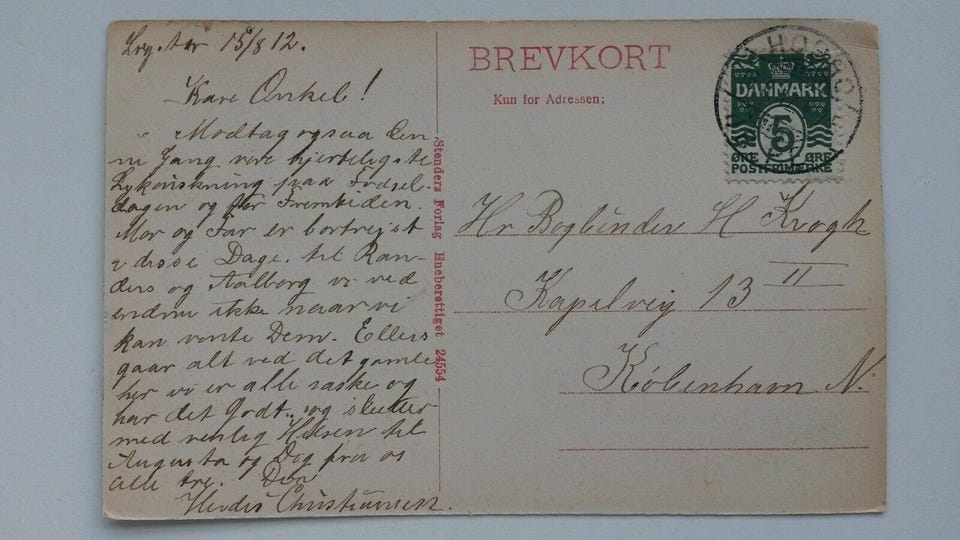 15/8 12.
Kære Onkel!
Modtag ogsaa den
ne Gang vore hjerteligste
Lykønskning paa Fødsel-
dagen og for Fremtiden.
Mor og Far er bortrejst
i disse Dage, til Ran-
ders og Aalborg vi ved
endnu ikke naar vi
kan vente Dem. Ellers
gaar alt ved det gamle
her vi er alle raske og
har det Godt. og slutter
med venlig Hilsen til
Augusta og Dig fra os
alle tre. Din
Christiansen.
Stenders Forlag Eneberettiget 24554
BREVKORT
Kun for Adressen:
DANMARK
5
ØRE ØRE
POSTFRIMÆRKE
Hr Bogbinder H Krogh
Kapelvej 13 II
København N.